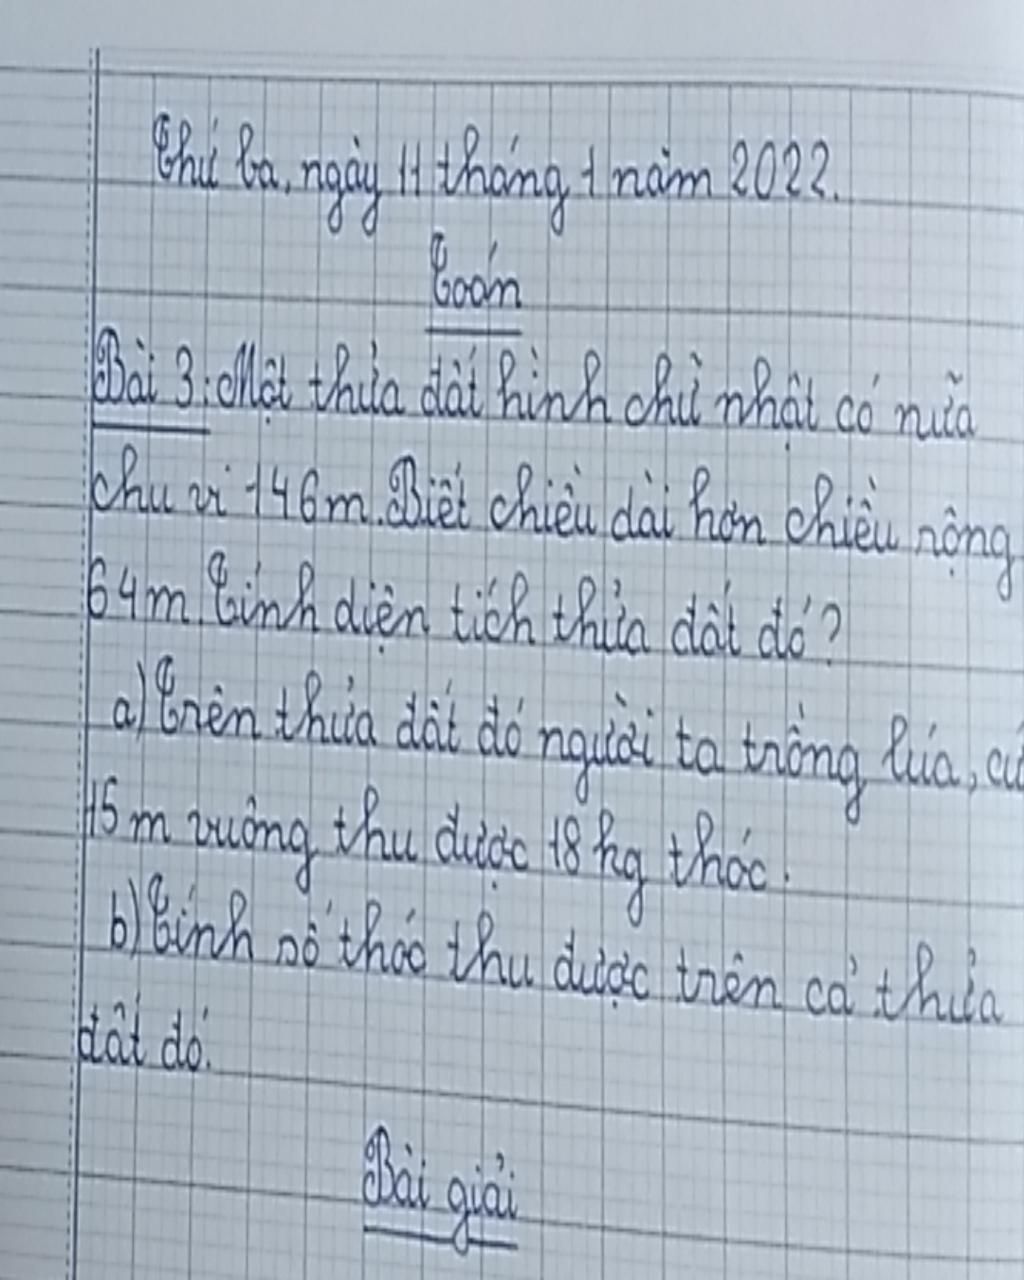 Thứ ba, ngày 11 tháng 1 năm 2022.
Toán
Bài 3: Một thửa đất hình chữ nhật có nữa
chu vi 146m. Biết chiều dài hơn chiều rộng
64m. Tính diện tích thửa đất đó?
a) Trên thửa đất đó người ta trồng lúa, cứ
15 m vuông thu được 18 kg thóc.
b) Tính số thóc thu được trên cả thửa
đất đó.
Bài giải